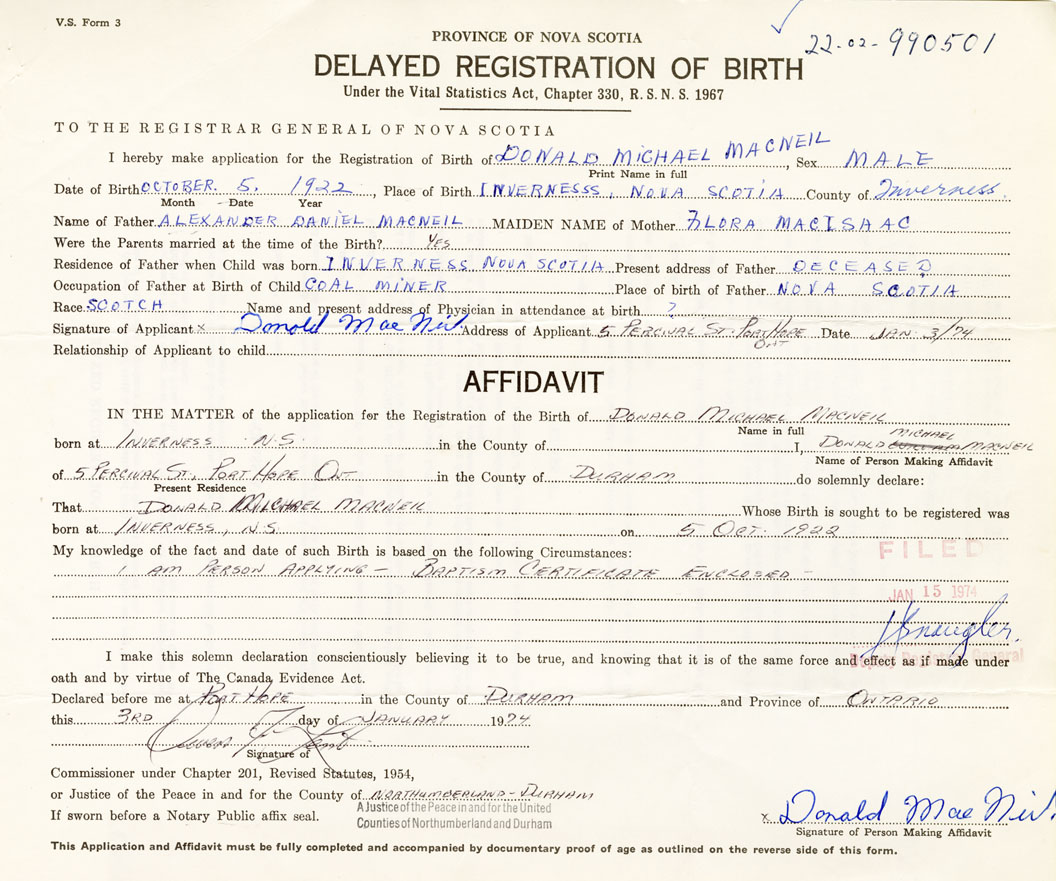 V.S. Form 3
22-02-990501
PROVINCE OF NOVA SCOTIA
DELAYED REGISTRATION OF BIRTH
Under the Vital Statistics Act, Chapter 330, R.S.N.S. 1967
TO THE REGISTRAR GENERAL OF NOVA SCOTIA
I hereby make application for the Registration of Birth of DONALD MICHAEL MACNEIL, Sex MALE
Print Name in full
Date of Birth OCTOBER. 5, 1922, Place of Birth INVERNESSS, NOVA SCOTIA County of Inverness.
Month Date Year
Name of Father ALEXANDER DANIEL MACNEIL MAIDEN NAME of Mother FLORA MACISAAC
Were the Parents married at the time of the Birth? YES
Residence of Father when Child was born INVERNESS NOVA SCOTIA Present address of Father DECEASED
Occupation of Father at Birth of Child COAL MINER Place of birth of Father NOVA SCOTIA
Race SCOTCH Name and present address of Physician in attendance at birth ?
Signature of Applicant x Donald Mac Neil Address of Applicant 5 PERCIVAL ST. PORT HOPE Date JAN 3/74
ONT
Relationship of Applicant to child
AFFIDAVIT
IN THE MATTER of the application for the Registration of the Birth of DONALD MICHAEL MACNEIL
Name in full
MICHAEL
born at INVERNESS N.S. in the County of I, DONALD MACNEIL
Name of Person Making Affidavit
of 5 PERCIVAL ST, PORT HOPE ONT in the County of DURHAM do solemnly declare:
Present Residence
That DONALD MICHAEL MACNEIL Whose Birth is sought to be registered was
born at INVERNESS, N.S. on 5 OCT. 1922
My knowledge of the fact and date of such Birth is based on the following Circumstances:
FILED
I AM PERSON APPLYING - BAPTISM CERTIFICATE ENCLOSED -
JAN 15 1974
I make this solemn declaration conscientiously believing it to be true, and knowing that it is of the same force and effect as if made under
Deputy Registrar General
oath and by virtue of The Canada Evidence Act.
Declared before me at PORT HOPE in the County of DURHAM and Province of ONTARIO
this 3RD day of JANUARY 1974
Signature of
Commissioner under Chapter 201, Revised Statutes, 1954,
or Justice of the Peace in and for the County of NORTHUMBERLAND-DURHAM
A Justice of the Peace in and for the United
If sworn before a Notary Public affix seal.
Counties of Northumberland and Durham
x Donald Mac Neil
Signature of Person Making Affidavit
This Application and Affidavit must be fully completed and accompanied by documentary proof of age as outlined on the reverse side of this form.